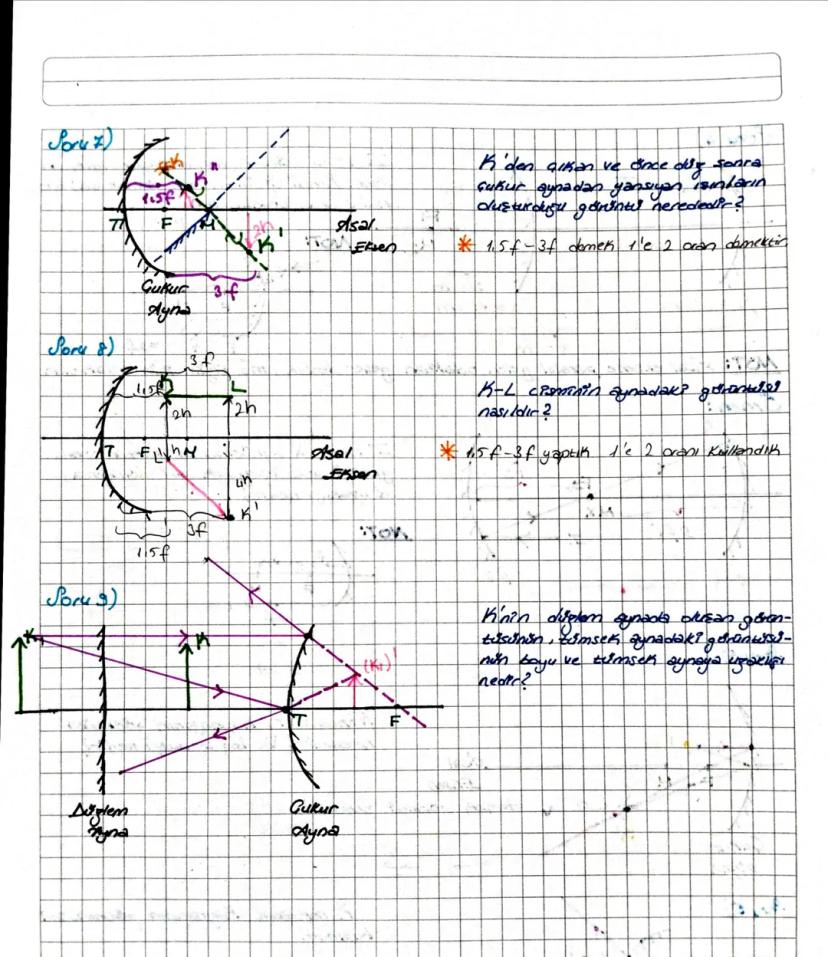 Soru 7)
K'den çıkan ve önce düz sonra
çukur aynadan yansıyan ışınların
oluşturduğu görüntü nerededir?
* 1,5f-3f demek 1'e 2 oran demektir
K"
1.5f
T F M
2h
K'
Asal
Eksen
3f
Çukur
Ayna
Soru 8)
3f
1.5f
L
2h 2h
T F L' h M
Asal
Eksen
4h
K'
3f
1.5f
K-L cisminin aynadaki görüntüsü
nasıldır?
* 1,5f-3f yaptık 1'e 2 oranı kullandık
NOT:
NOT:
Soru 9)
K'nin düzlem aynada oluşan görün-
tüsünün, tümsek aynadaki görüntüsü-
nün boyu ve tümsek aynaya uzaklığı
nedir?
K
(K₁)'
T F
Düzlem
Ayna
Çukur
Ayna